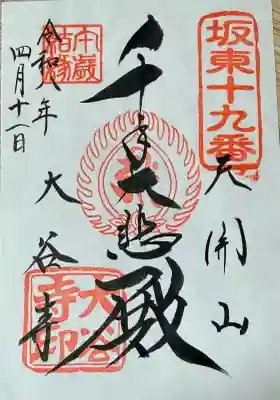 坂東十九番
天開山
千手大悲殿
大谷寺
午歳結縁
令和八年
四月十二日
大谷寺印